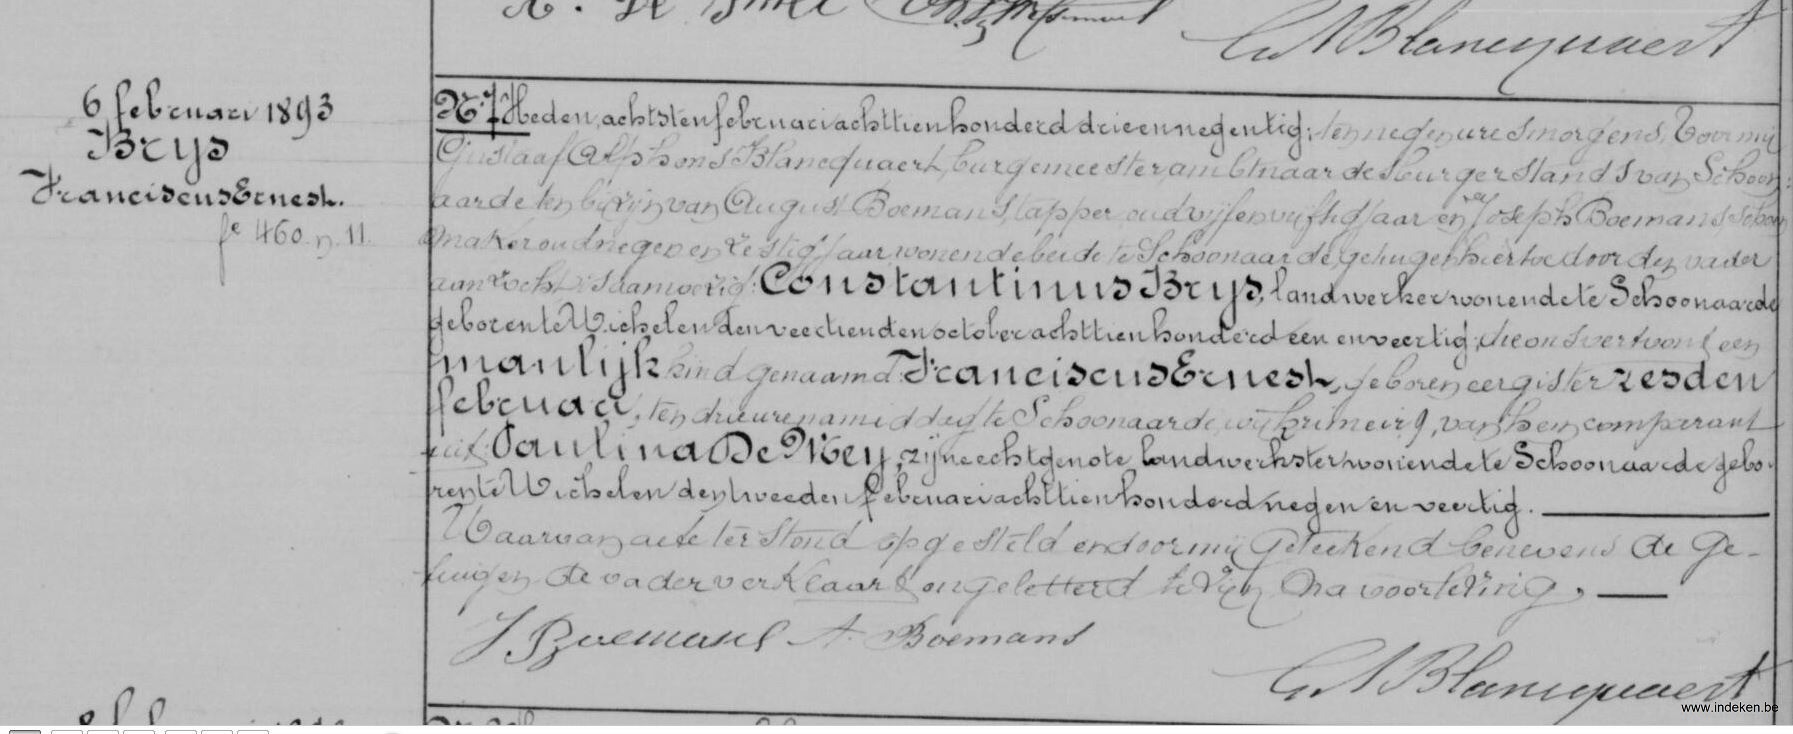 A. De Smet
G A Blancquaert
6 februari 1893
Brys
Franciscus Ernest.
fe 460. n. 11.
N. 7 Heden, achtsten februari achttien honderd drie en negentig, ten negen ure smorgens, Voor mij
Gustaaf Alphons Blancquaert, burgemeester, ambtnaar des burgerstands van Schoon:
aarde ten bijzijn van August Boemans, tapper, oud vijf en vijftig jaar en van Joseph Boemans, schoen
maker oud negen en zestig jaar wonende beide te Schoonaarde, getugen hiertoe door den vader
aanzocht, is aanwezig: Constantinus Brys, landwerker wonende te Schoonaarde
geboren te Wichelen den veertienden october achttien honderd een en veertig; die ons vertoont een
manlijk kind genaamd: Franciscus Ernest, geboren eergister zesden
februari, ten drie ure namiddag te Schoonaarde, wijk 9, van hem comparant
uit: Paulina De Mey, zijne echtgenote landwerkster wonende te Schoonaarde gebo-
ren te Wichelen den tweeden februari achttien honderd negen en veertig.
Waarvan acte terstond opgesteld en door mij geteekend benevens de ge-
tuigen de vader verklaart ongeletterd te zijn na voorlezing.
J Boemans A. Boemans
G A Blancquaert
www.indeken.be